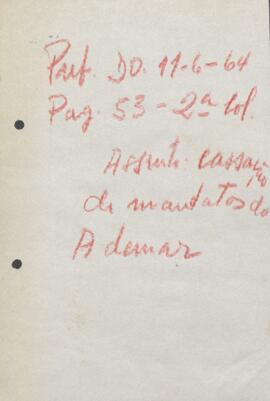 Pref. DO. 11-6-64
Pag. 53 - 2ª Col.
Assunto: cassação
de mandatos do
Ademar